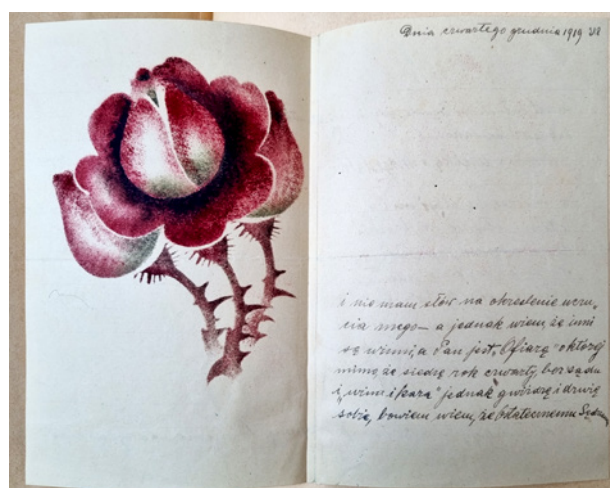 Dnia czwartego grudnia 1919
i nie mam słów na określenie uczu„
cia mego — a jednak wiem, że inni
są winni, a Pan jest „Ofiarą" o której
mimo, że siedzę rok czwarty, bez sądu
i „winy i kara" jednak gwiżdżę i drwię
sobie, bowiem wiem, że Ostatecznemu